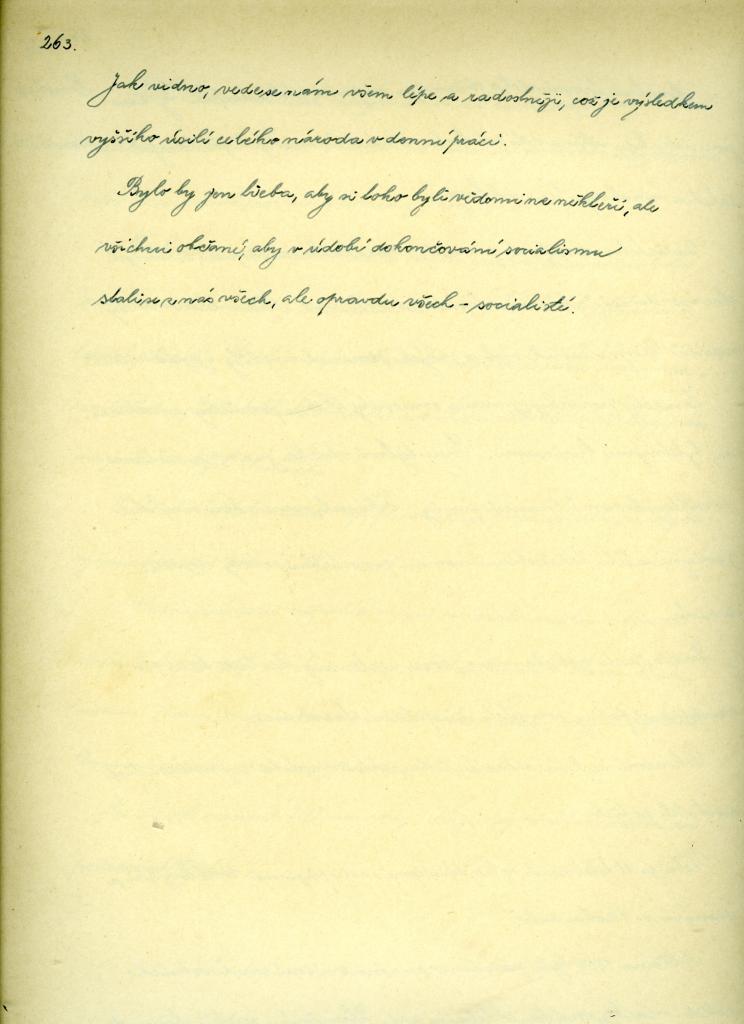 263.
Jak vidno, vede se nám všem lépe a radostněji, což je výsledkem
vyššího úsilí celého národa v denní práci.
Bylo by jen třeba, aby si toho byli vědomi ne někteří, ale
všichni občané, aby v údobí dokončování socialismu
stali se z nás všech, ale opravdu všech - socialisté.